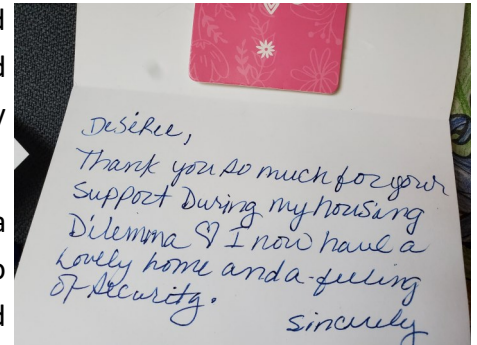 d
d
y
a
o
d
Desiree,
Thank you so much for your
Support During my housing
Dilemma ♡ I now have a
Lovely home and a feeling
Of Security.
Sincerely